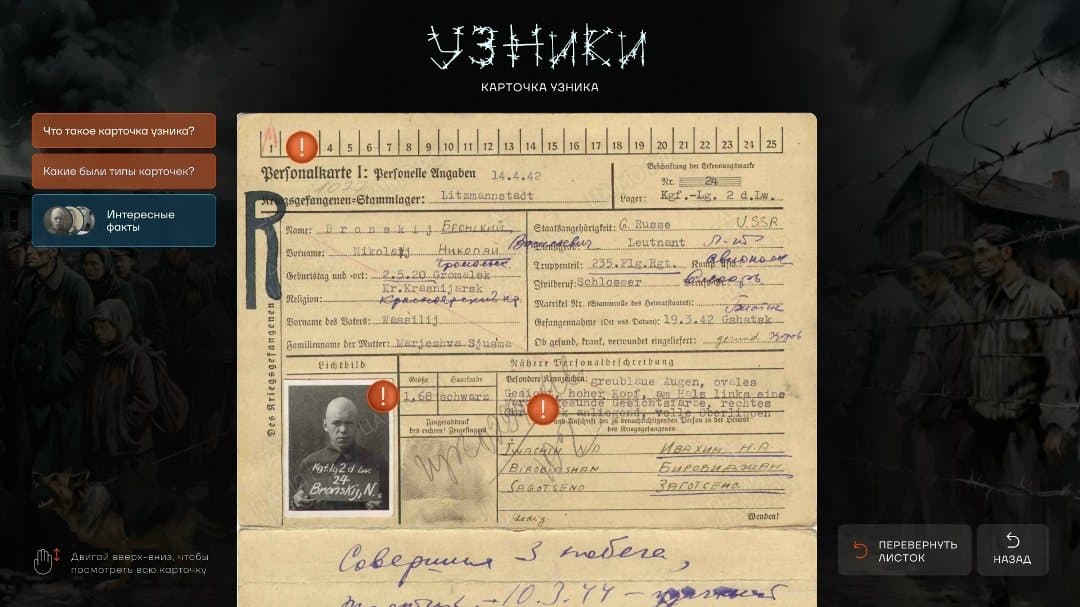 УЗНИКИ
КАРТОЧКА УЗНИКА
Что такое карточка узника?
Какие были типы карточек?
Интересные
факты
1 4 5 6 7 8 9 10 11 12 13 14 15 16 17 18 19 20 21 22 23 24 25
Personalkarte I: Personelle Angaben 14.4.42
Beschriftung der Erkennungsmarke
Nr. 24
Kriegsgefangenen-Stammlager: Litzmannstadt
Lager: Kgf.-Lg. 2 d.Lw.
R
Des Kriegsgefangenen
Name: Bronskij Бронский
Vorname: Nikolaj Николай Васильевич
Geburtstag und -ort: 2.5.20 Gromalsk
Kr.Krasnijarsk
Religion: Красноярский кр.
Vorname des Vaters: Wassilij
Familienname der Mutter: Marjeshva Sjusma
Staatsangehörigkeit: G. Russe U.S.S.R
Leutnant Л-т
Truppenteil: 235.Flg.Rgt.
Zivilberuf: Schlosser Слесарь
Matrikel Nr. (Stammrolle des Heimatstaates):
Gefangennahme (Ort und Datum): 19.3.42 Gshatsk
Ob gesund, krank, verwundet eingeliefert: gesund
Lichtbild
Nähere Personalbeschreibung
Größe Haarfarbe Besondere Kennzeichen:
1,68 schwarz
greublaue Augen, ovales
hoher Kopf, am Hals links eine
gesunde Gesichtsfarbe, rechtes
anliegend, volle Oberlippen
Fingerabdruck
des rechten! Zeigefingers
und Anschrift der zu benachrichtigenden Person in der Heimat
des Kriegsgefangenen
Ивахин Н.А.
BIROBIASHAN БИРОБИДЖАН
SAGOTSENO ЗАГОТСЕНО
ledig
Wenden!
Kgf.lg 2 d Lw.
24
Bronskij, N.
Совершил 3 побега,
10.3.44
Двигай вверх-вниз, чтобы
посмотреть всю карточку
ПЕРЕВЕРНУТЬ
ЛИСТОК
НАЗАД